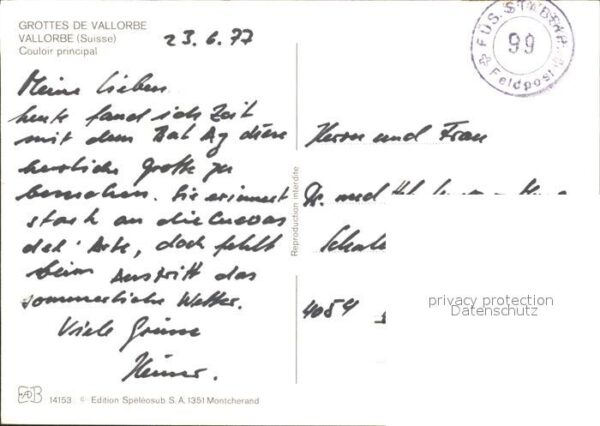 GROTTES DE VALLORBE
VALLORBE (Suisse)
Couloir principal
23.6.77
Meine Lieben
heute fand ich Zeit
mit dem Bat Ag diese
herrliche Grotte zu
besuchen. Sie erinnert
stark an die Cuevas
del' Arte, doch fehlt
beim Austritt das
sommerliche Wetter.
Viele Grüsse
Heiner.
14153 © Edition Spéléosub S.A. 1351 Montcherand
Reproduction interdite
FÜS. STABSKP. 99
Feldpost
Herrn und Frau
Dr. med
4054
privacy protection
Datenschutz